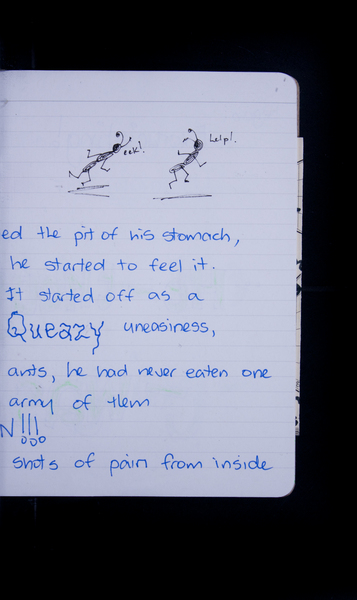 eek! help!
ed the pit of his stomach,
he started to feel it.
It started off as a
Queazy uneasiness,
ants, he had never eaten one
army of them
N!!!
shots of pain from inside